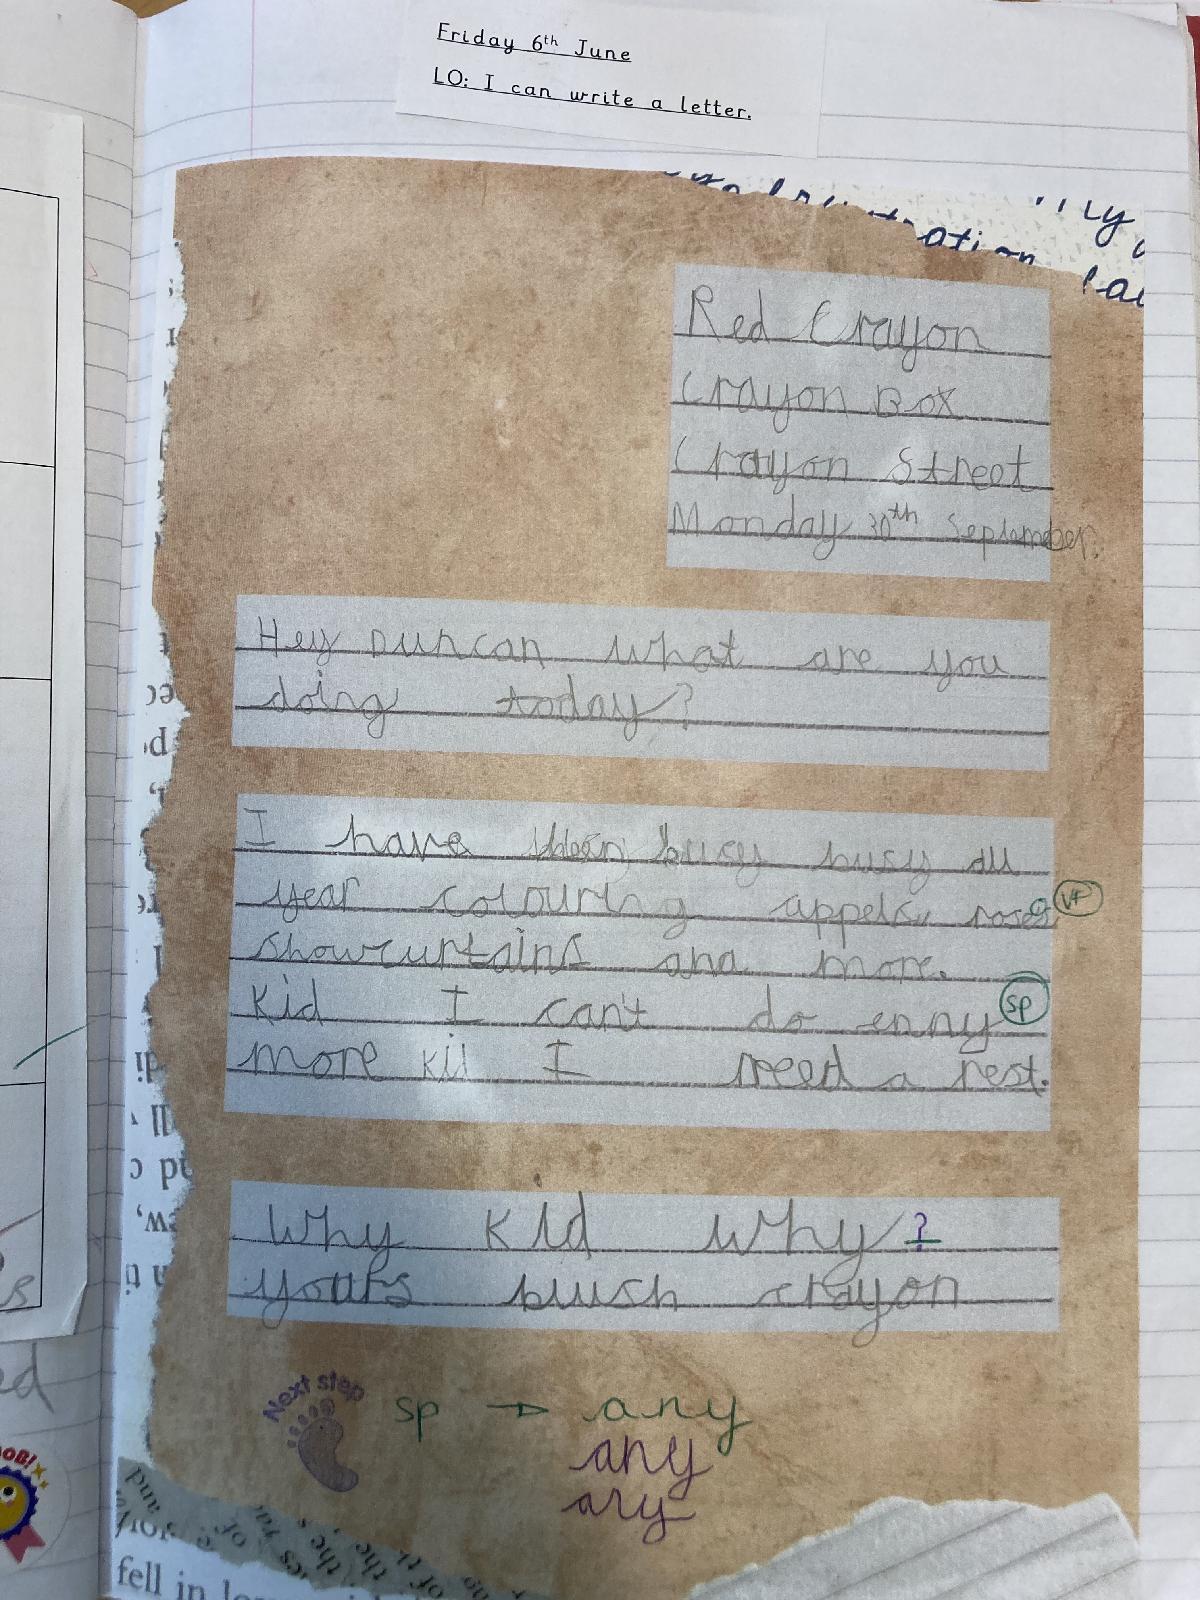 Friday 6th June
LO: I can write a letter.
Red Crayon
Crayon Box
Crayon Street
Monday 30th September.
Hey Duncan what are you
doing today?
I have been busy busy all
year colouring appels, roses VF
showcurtains and more.
Kid I can't do enny sp
more kid I need a rest.
Why kid why?
yours
crayon
Next step
sp → any
any
any
fell in